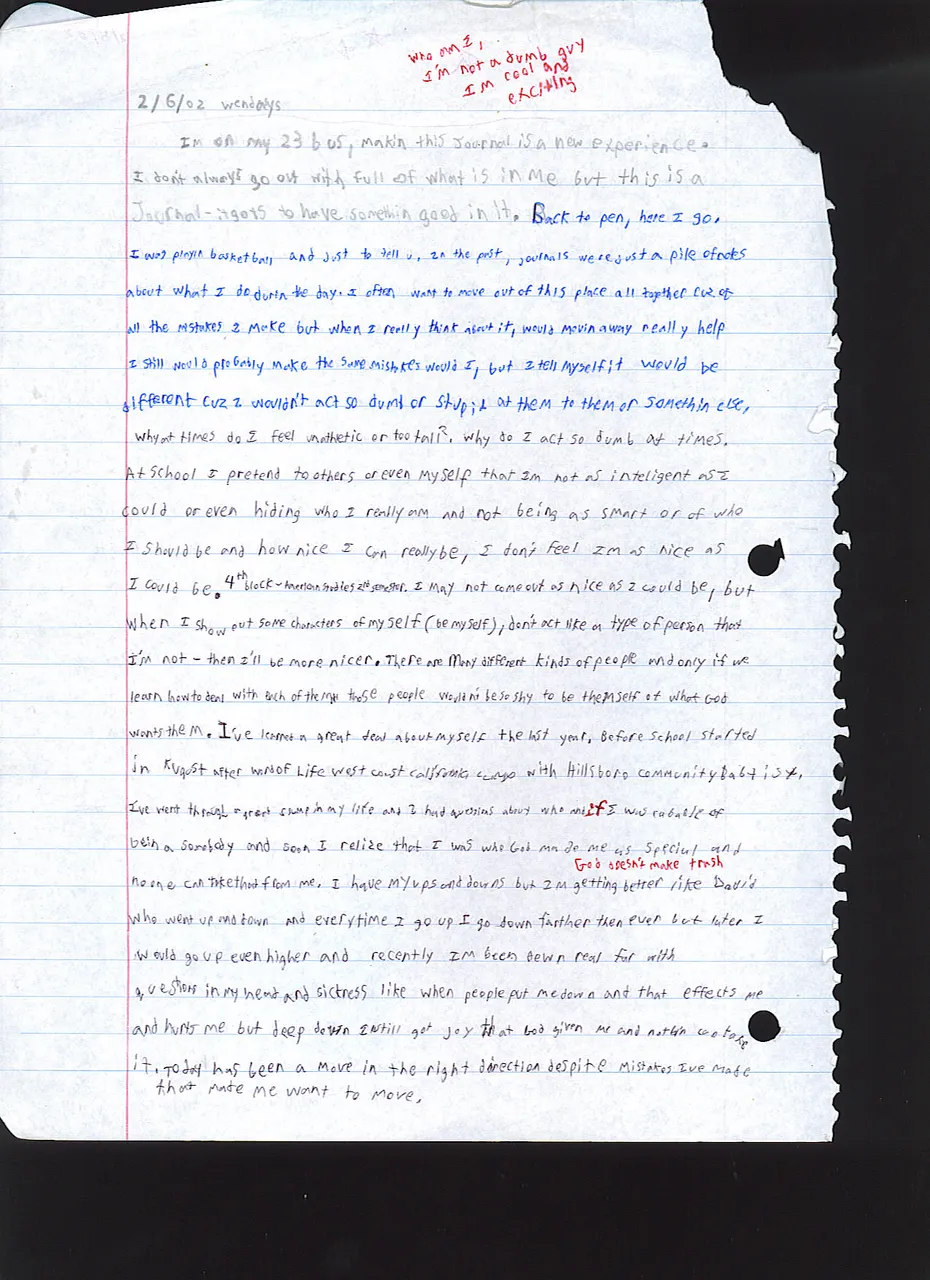 Who am I,
I'm not a dumb guy
I'm cool and
exciting
2/6/02 wendays
Im on my 23 bus, makin this Journal is a new experience.
I don't always go out with full of what is in me but this is a
Journal - it gots to have somethin good in it. Back to pen, here I go.
I was playin basketball and just to tell u, in the past, journals were just a pile of notes
about what I do durin the day. I often want to move out of this place all together cuz of
all the mistakes I make but when I really think about it, would movin away really help
I still would probably make the same mistakes would I, but I tell myself it would be
different cuz I wouldn't act so dumb or stupid at them to them or somethin else,
Why at times do I feel unathetic or too tall?, why do I act so dumb at times.
At School I pretend to others or even myself that Im not as inteligent as I
could or even hiding who I really am and not being as smart or of who
I should be and how nice I can really be, I don't feel Im as nice as
I could be. 4th block - American studies 2nd semester. I may not come out as nice as I could be, but
when I show out some characters of my self (be myself), don't act like a type of person that
I'm not - then I'll be more nicer. There are many different kinds of people and only if we
learn how to deal with each of them those people wouldn't be so shy to be themself of what God
wants them. I've learned a great deal about myself the last year. Before school started
in August after word of Life west coast california camp with Hillsboro community Babtist.
I've went through a great in my life and I had questions about who and if I was capable of
bein a somebody and soon I relize that I was who God made me as special and
God doesn't make trash
no one can take that from me. I have my ups and downs but Im getting better like David
who went up and down and everytime I go up I go down farther then ever but later I
would go up even higher and recently Im been down real far with
questions in my head and sickness like when people put me down and that effects me
and hurts me but deep down I still got joy that God given me and nothin can take
it. Today has been a move in the right direction despite mistakes I've made
that made me want to move.